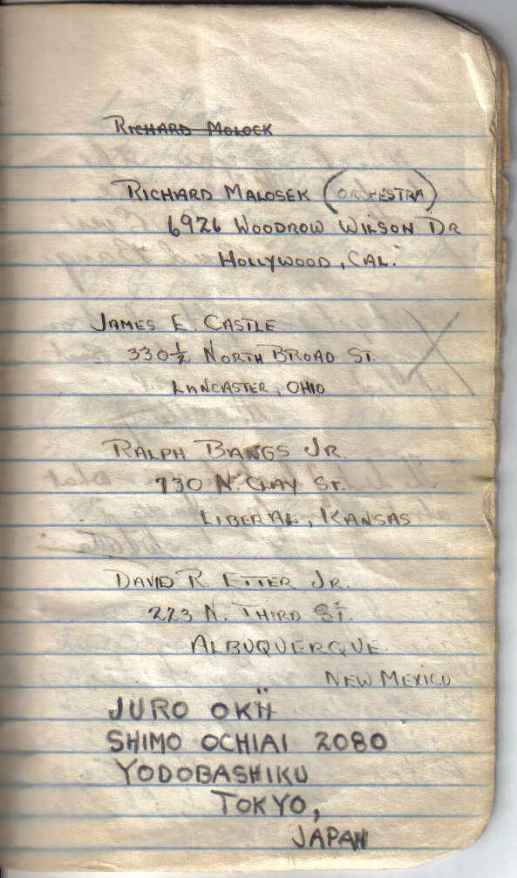 RICHARD MOLOCK
RICHARD MALOSEK (ORCHESTRA)
6926 WOODROW WILSON DR
HOLLYWOOD, CAL.
JAMES E. CASTLE
330½ NORTH BROAD ST.
LANCASTER, OHIO
RALPH BANGS JR.
730 N. CLAY ST.
LIBERAL, KANSAS
DAVID R. ETTER JR.
223 N. THIRD ST.
ALBUQUERQUE
NEW MEXICO
JURO OKII
SHIMO OCHIAI 2080
YODOBASHIKU
TOKYO,
JAPAN